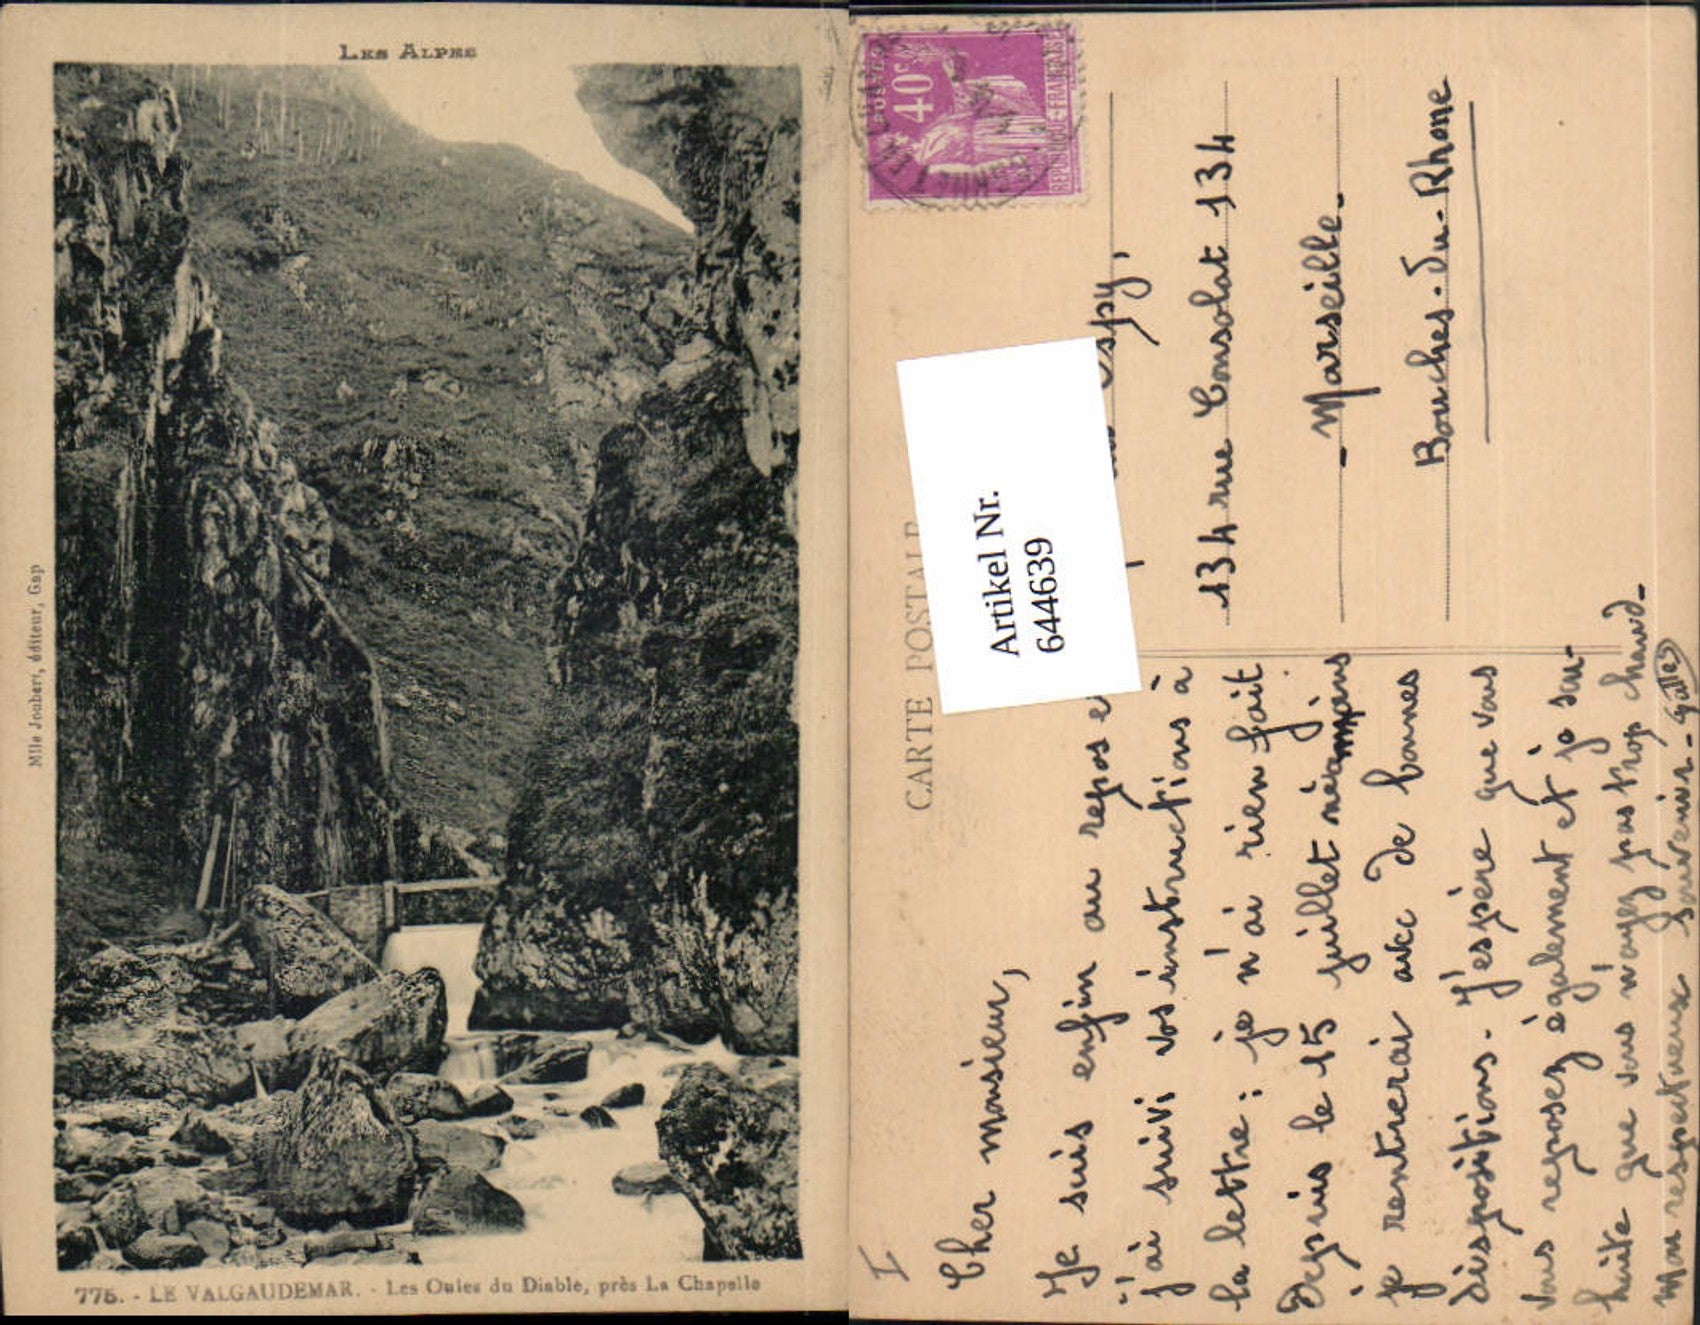 LES ALPES
Mlle Joubert, éditeur, Gap
775. - LE VALGAUDEMAR. - Les Oules du Diable, près La Chapelle
POSTES
40c
REPUBLIQUE-FRANÇAISE
CARTE POSTALE
Artikel Nr.
644639
Espy,
134 rue Consolat 134
- Marseille -
Bouches-du-Rhone
I
Cher monsieur,
Je suis enfin au repos e
j'ai suivi vos instructions à
la lettre : je n'ai rien fait
Depuis le 15 juillet néanmoins
je rentrerai avec de bonnes
dispositions. J'espère que vous
vous reposez également et je sou-
haite que vous n'ayez pas trop chaud -
Mon respectueux souvenir - Galles